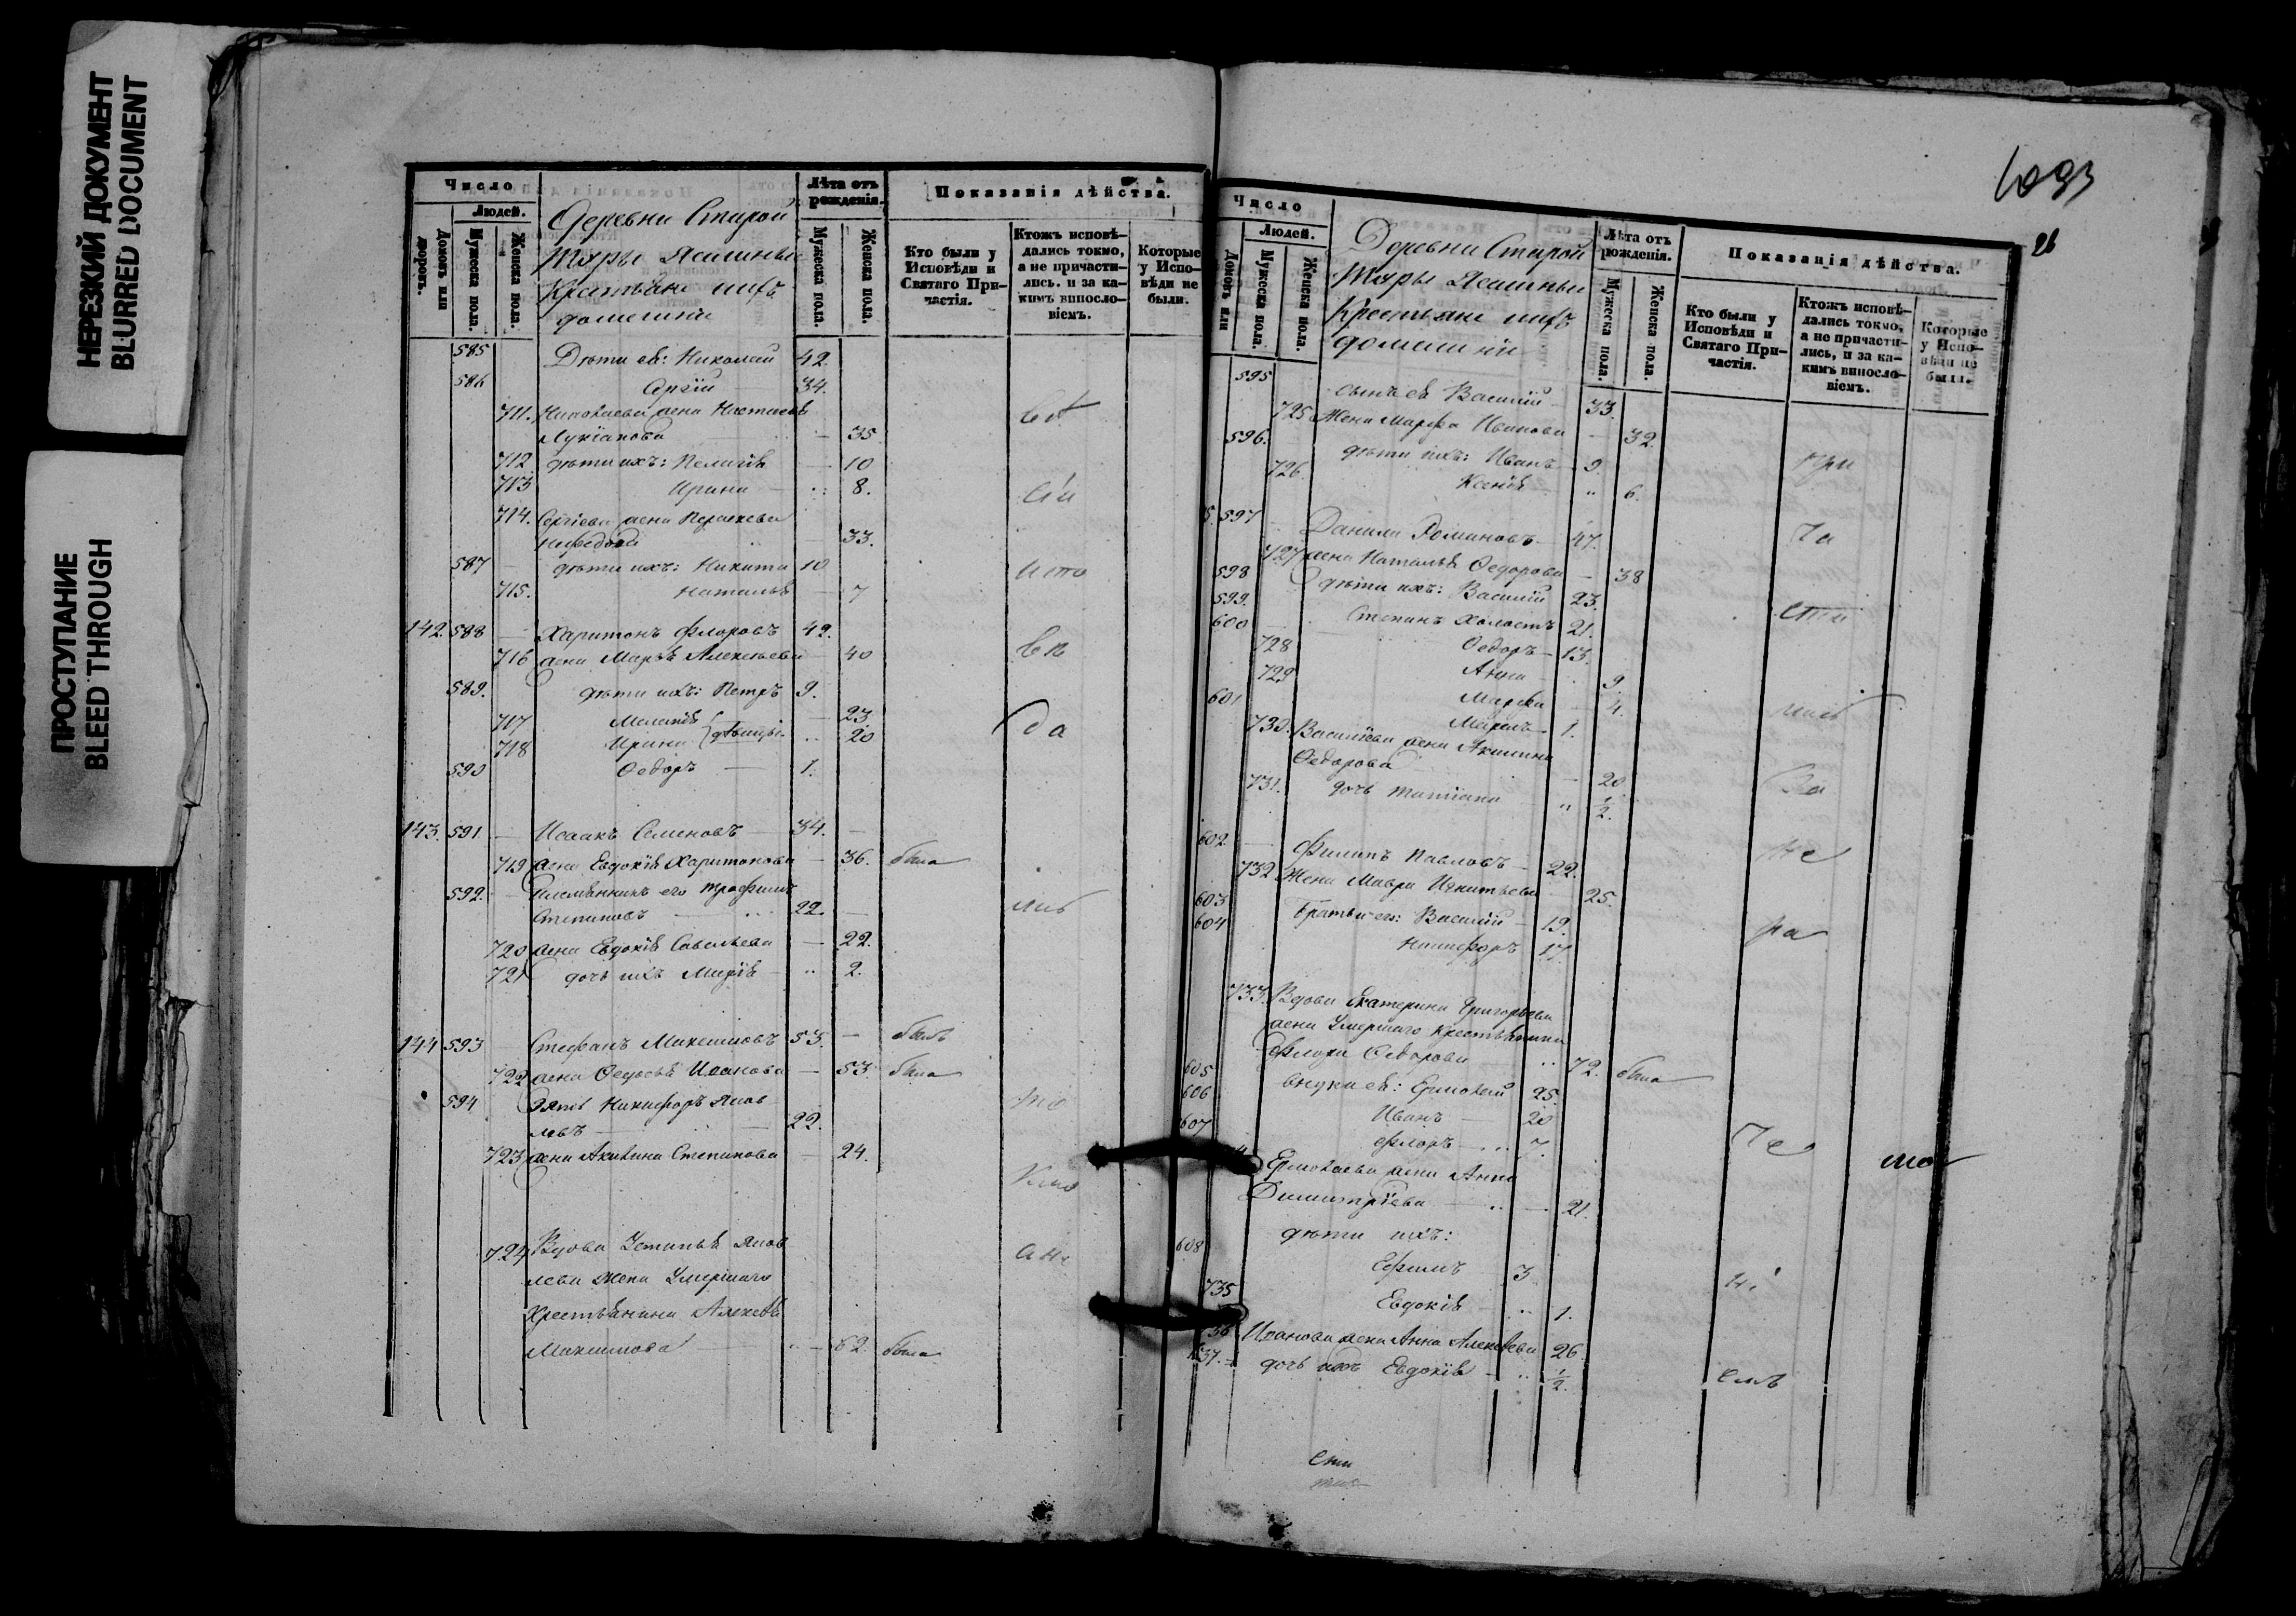 НЕРЕЗКИЙ ДОКУМЕНТ
BLURRED DOCUMENT
ПРОСТУПАНИЕ
BLEED THROUGH
Число
Людей.
Домовъ или дворовъ.
Мужеска пола.
Женска пола.
Деревни Старой
Крестьяне ихъ
домашніи
Лѣта отъ рожденія.
Мужеска пола.
Женска пола.
Показанія дѣйства.
Кто были у Исповѣди и Святаго Причастія.
Ктожъ исповѣдались токмо, а не причастились. и за какимъ винословіемъ.
Которые у Исповѣди не были.
585 Дѣти ея: Николай 42.
586 Сергій 34.
711. Николаева жена Настасья
Лукіанова — 35
712. дѣти ихъ: Пелагія — 10
713 Ирина 8.
714. Сергіева жена Параскева
33.
587 дѣти ихъ: Никита 10
715. Наталья — 7
142. 588 Харитонъ Флоровъ 49.
716 жена Марья Алексѣева 40
589. дѣти ихъ: Петръ 9.
717 Меланія — 23
718 Ирина дѣвицы 20
590 Ѳедоръ — 1.
143. 591. Исаакъ Семеновъ 34.
719 жена Евдокія Харитонова — 36. была
592. племянникъ его Трофимъ
Степановъ 22.
720 жена Евдокія Савельева — 22.
721 дочь ихъ Марія 2.
144 593 Стефанъ Максимовъ 53. — былъ
722 жена Ѳедосья Иванова — 53 была
594 Зять Никифоръ Яков
левъ 22.
723 жена Акилина Степанова — 24.
724 Вдова Устинья Яков
лева жена Умершаго
Крестьянина Алексѣя
Максимова — 62. была
1093
26
Число
Людей.
Домовъ или
Мужеска пола.
Женска пола.
Деревни Старой
Крестьяне ихъ
домашніи
Лѣта отъ рожденія.
Мужеска пола.
Женска пола.
Показанія дѣйства.
Кто были у Исповѣди и Святаго Причастія.
Ктожъ исповѣдались токмо, а не причастились, и за какимъ винословіемъ.
Которые у Исповѣди не были.
595 сынъ ея Василій 33.
725 Жена Марфа Иванова — 32.
596. дѣти ихъ: Иванъ 9.
726. Ксенія 6.
597 Данила Романовъ 47.
727 жена Наталья Ѳедорова — 38
598 дѣти ихъ: Василій 23.
599. Степанъ Холостъ 21.
600 Ѳедоръ 13.
728 Анна 9.
729 Марфа 4.
601 1.
730. Васильева жена Акилина
Ѳедорова — 20
731. дочь Татіана ½.
602 Филипъ Павловъ 22.
732 Жена Мавра Игнатьева 25.
603 братья его: Василій 19.
604 Никифоръ 17.
733. Вдова Екатерина Григорьева
жена Умершаго Крестьянина
Ѳедорова 72. была
605 внуки ея: Ермолай 25.
606 Иванъ 20
607 Флоръ 7.
Ермолаева жена Анна
Димитріева — 21.
дѣти ихъ:
608 Ефимъ 3
735 Евдокія 1.
736 Иванова жена Анна Алексѣева 26
737. дочь ихъ Евдокія ½.